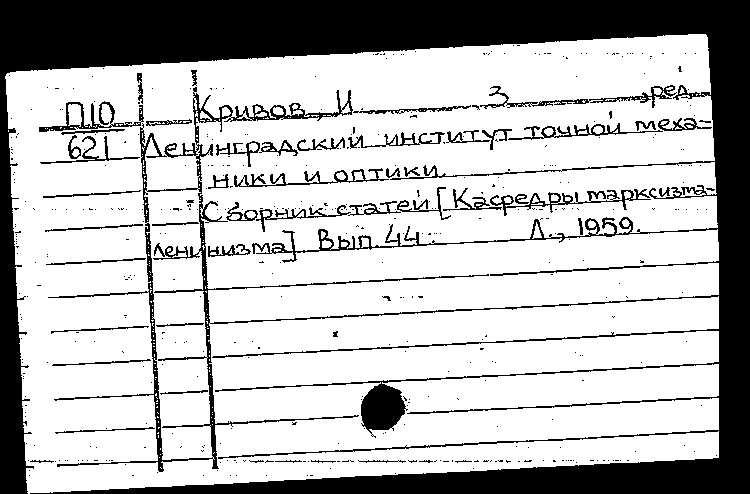 П10 Кривов, И З , ред.
621 Ленинградский институт точной меха-
ники и оптики.
Сборник статей [Кафедры марксизма-
ленинизма]. Вып. 44. Л., 1959.